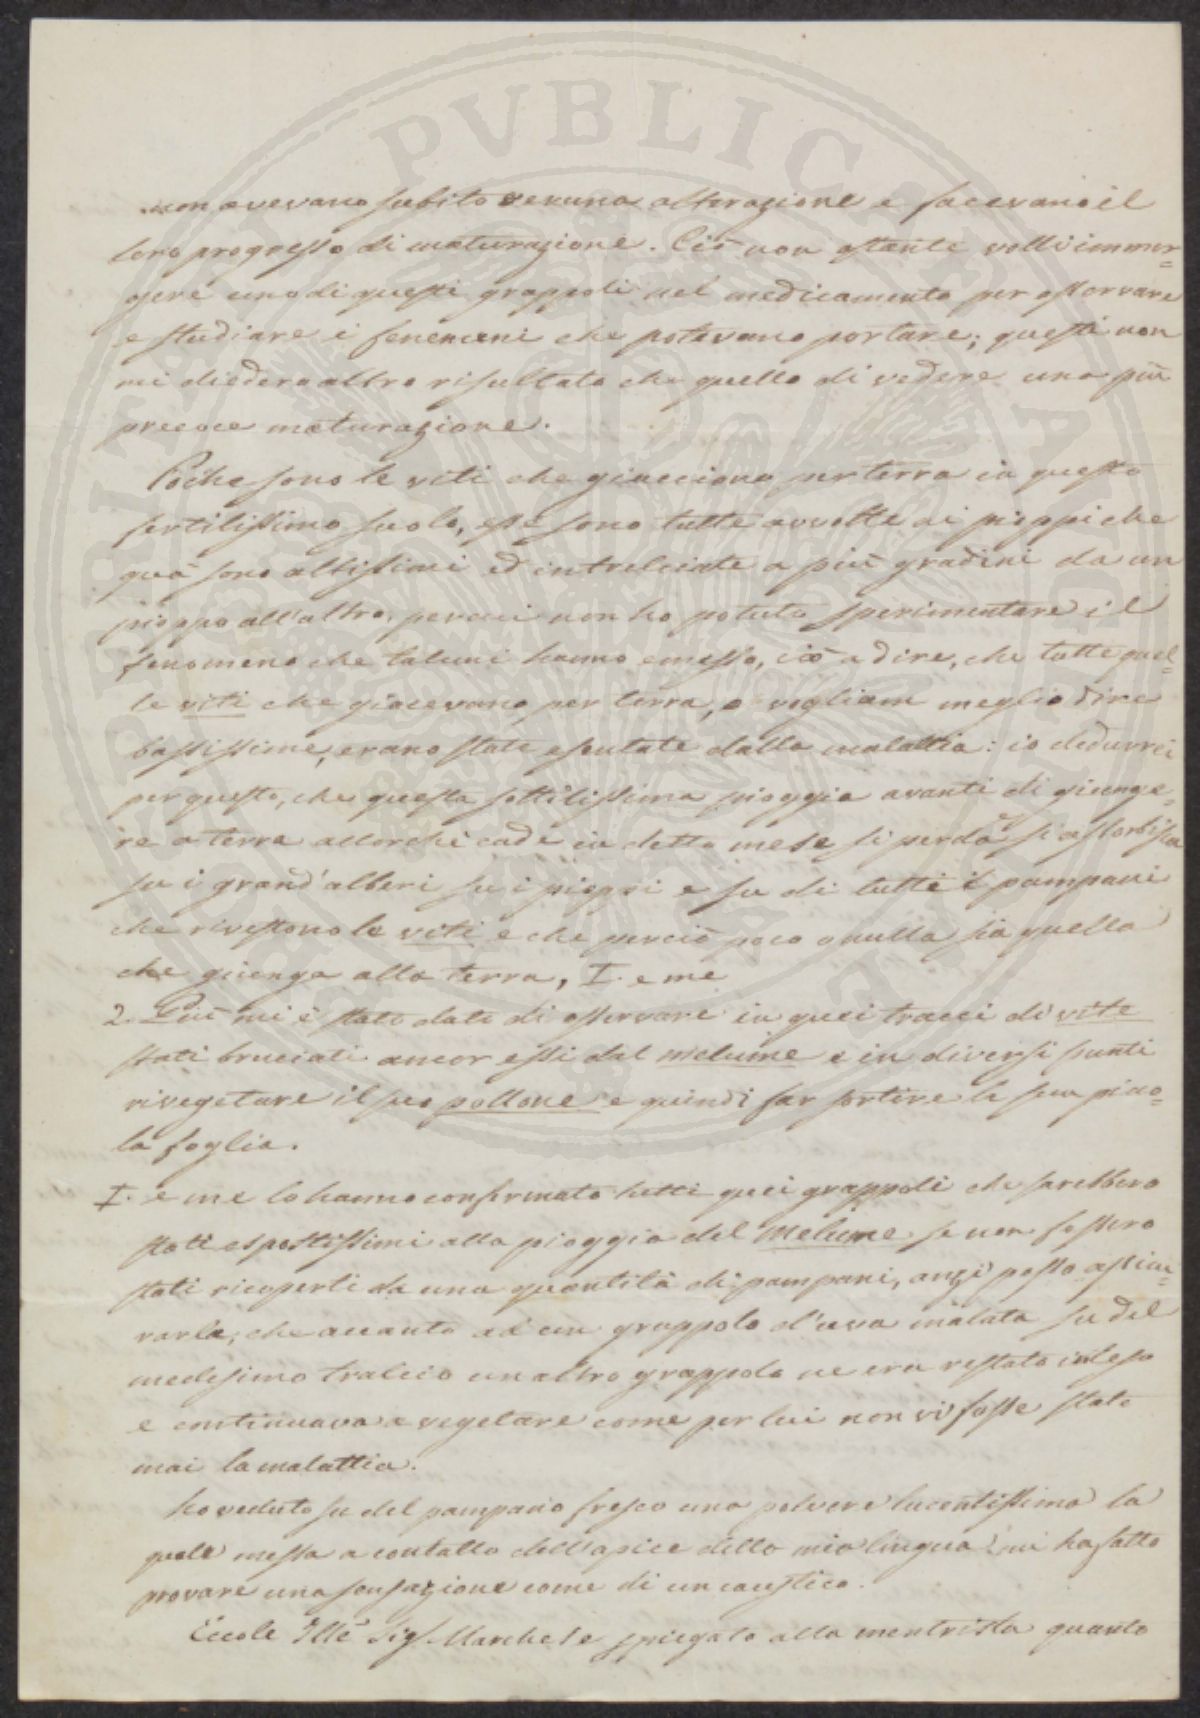 non avevano subito veruna alterazione e facevano il
loro progresso di maturazione. Ciò non ostante volli immer=
gere uno di questi grappoli nel medicamento per osservare
e studiare i fenomeni che potevano portare; questi non
mi diedero altro risultato che quello di vedere una più
precoce maturazione.
Poche sono le viti che giacciono per terra in questo
fertilissimo suolo, esse sono tutte avvolte ai pioppi che
quà sono altissimi ed intralciate a più gradini da un
pioppo all'altro, per cui non ho potuto sperimentare il
fenomeno che taluni hanno emesso, ciò a dire, che tutte quel=
le viti che giacevano per terra, o vogliam meglio dire
bassissime, erano state esentate dalla malattia: io dedurrei
per questo, che questa sottilissima pioggia avanti di giunge=
re a terra allorchè cade in detto mese si perda si assorbisca
su i grand'alberi su i pioppi e su di tutti i pampani
che rivestono le viti e che perciò poco o nulla sia quella
che giunga alla terra, I. e me
2. Più mi è stato dato di osservare in quei tracci di vite
stati bruciati ancor essi dal melume e in diversi punti
rivegetare il suo pollone e quindi far sortire la sua picco=
la foglia.
I. e me lo hanno confirmato tutti quei grappoli che sarebbero
stati espostissimi alla pioggia del melume se non fossero
stati ricoperti da una quantità di pampani, anzi posso assicu=
rarla, che accanto ad un grappolo d'uva malata su del
medesimo tralcio un altro grappolo ne era restato inleso
e continuava a vegetare come per lui non vi fosse stata
mai la malattia.
ho veduto su del pampano fresco una polvere lucentissima la
quale messa a contatto dell'apice della mia lingua mi ha fatto
provare una sensazione come di un caustico.
Eccole Ill.e Sig.r Marchese spiegato alla mentrista quanto